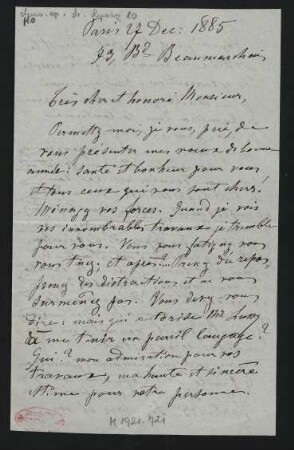 Paris 27 Dec: 1885
93, Bd Beaumarchais
Très cher et honoré Monsieur,
Permettez-moi, je vous prie, de
vous présenter mes vœux de bonne
année: santé et bonheur pour vous
et tous ceux qui vous sont chers.
Ménagez vos forces. Quand je vois
vos innombrables travaux je tremble
pour vous. Vous vous fatiguez vous
vous tuez et après? Prenez du repos
prenez des distractions et ne vous
surmenez pas. Vous devez vous
dire: mais qui autorise Mr
à me tenir un pareil langage?
Qui? mon admiration pour vos
travaux, ma haute et sincère
estime pour votre personne.
H 1921.721